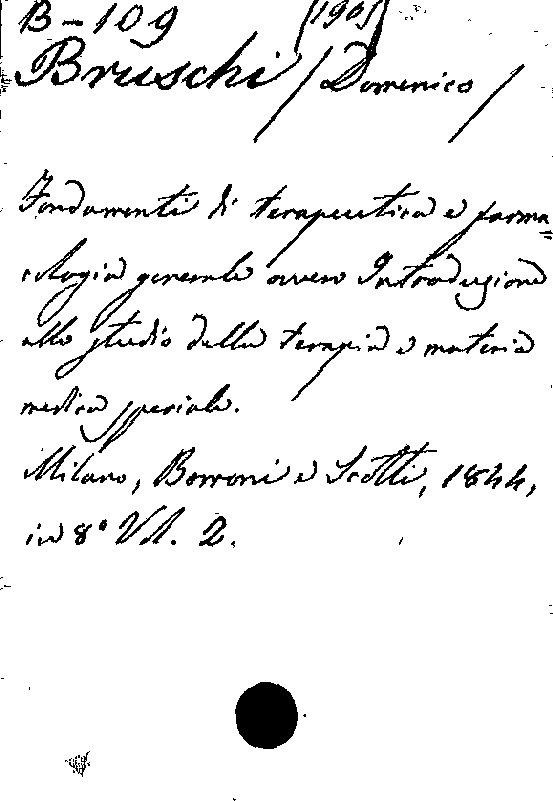 B-109 (1905)
Bruschi / Domenico /
Fondamenti di terapeutica e farma=
cologia generale ovvero Introduzione
allo studio della terapia e materia
medica speciale.
Milano, Borroni e Scotti, 1844,
in 8° Vol. 2.